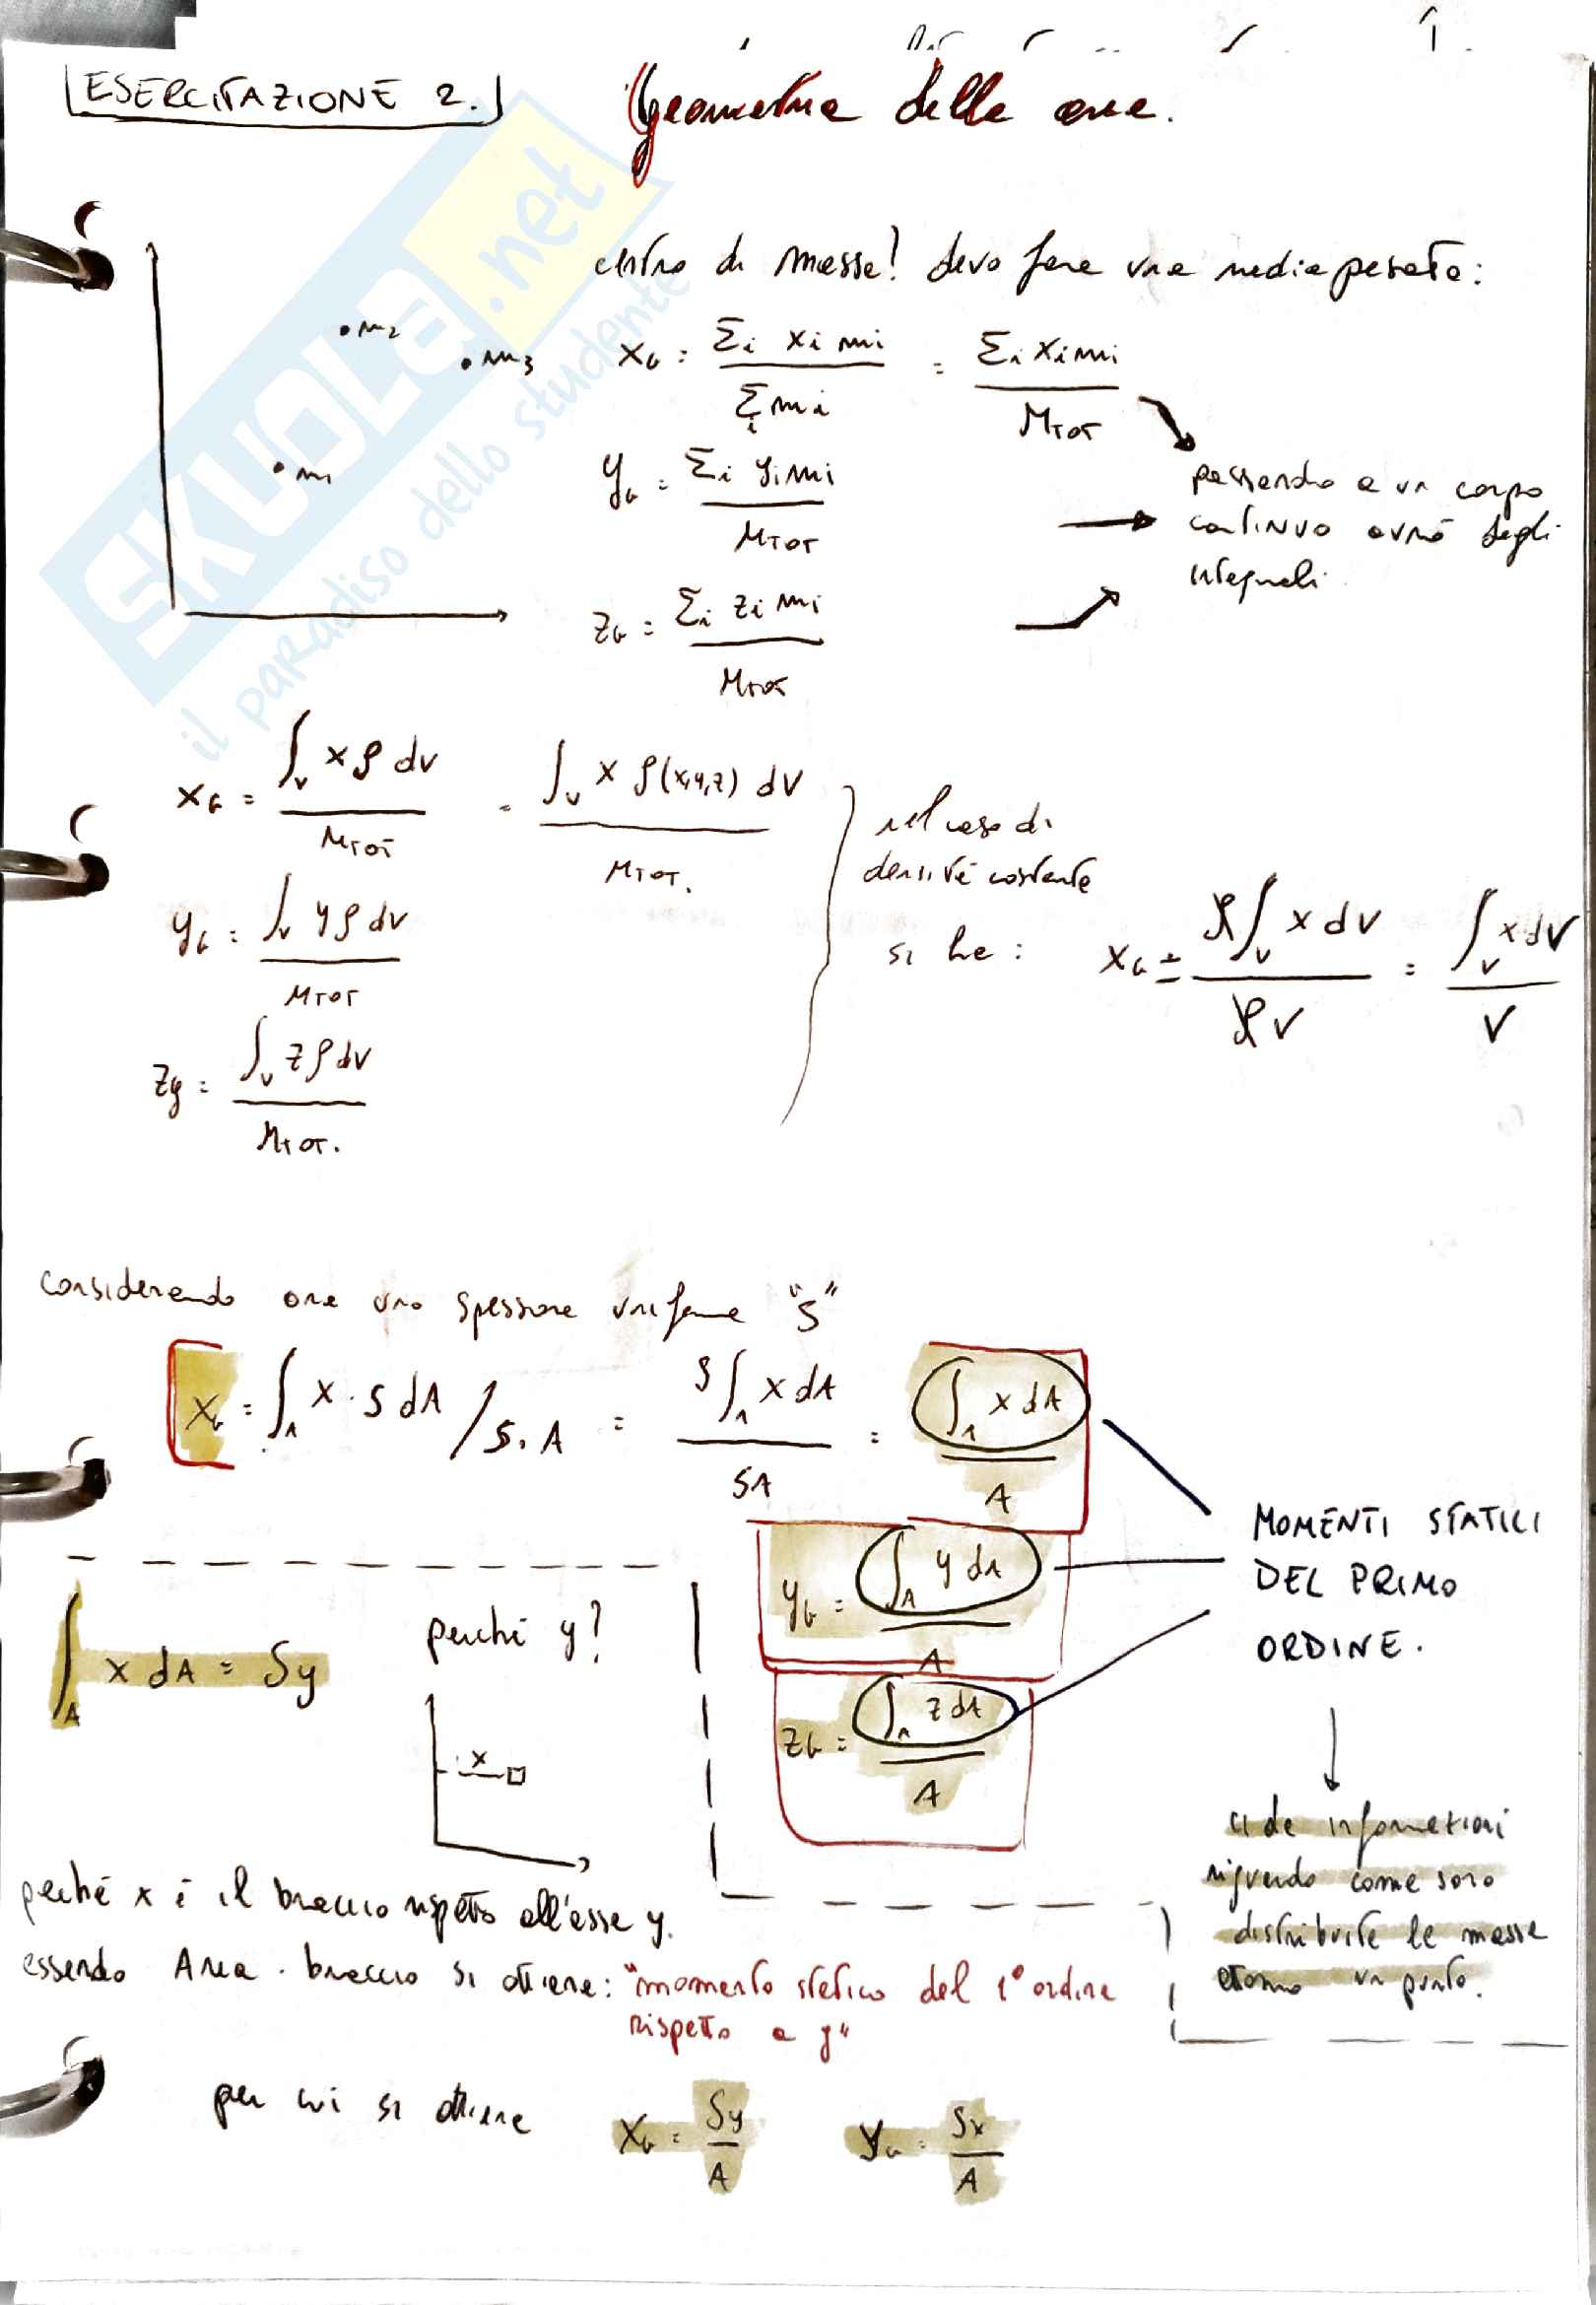 1.
ESERCITAZIONE 2.
Geometria delle aree.
centro di massa! devo fare una media pesata:
m2
m3
m1
xG = Σi xi mi / Σi mi = Σi xi mi / MTOT
yG = Σi yi mi / MTOT
zG = Σi zi mi / MTOT
passando a un corpo
continuo avrò degli
integrali.
xG = ∫V x ρ dV / MTOT = ∫V x ρ(x,y,z) dV / MTOT.
yG = ∫V y ρ dV / MTOT
zg = ∫V z ρ dV / MTOT.
nel caso di
densità costante
si ha : xG = ρ ∫V x dV / ρ V = ∫V x dV / V
considerando ora uno spessore uniforme "S"
xG = ∫A x · S dA / S . A = S ∫A x dA / SA = ∫A x dA / A
yG = ∫A y dA / A
zG = ∫A z dA / A
MOMENTI STATICI
DEL PRIMO
ORDINE.
ci da informazioni
riguardo come sono
distribuite le masse
attorno un punto.
∫A x dA = Sy
perché y?
x
perché x è il braccio rispetto all'asse y.
essendo Area . braccio si ottiene: "momento statico del 1° ordine
rispetto a y"
per cui si ottiene xG = Sy / A yG = Sx / A
SKUOLA.net
il paradiso dello studente